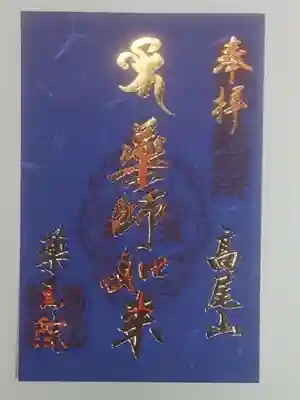 奉拝
高尾山
薬師如来
薬王院